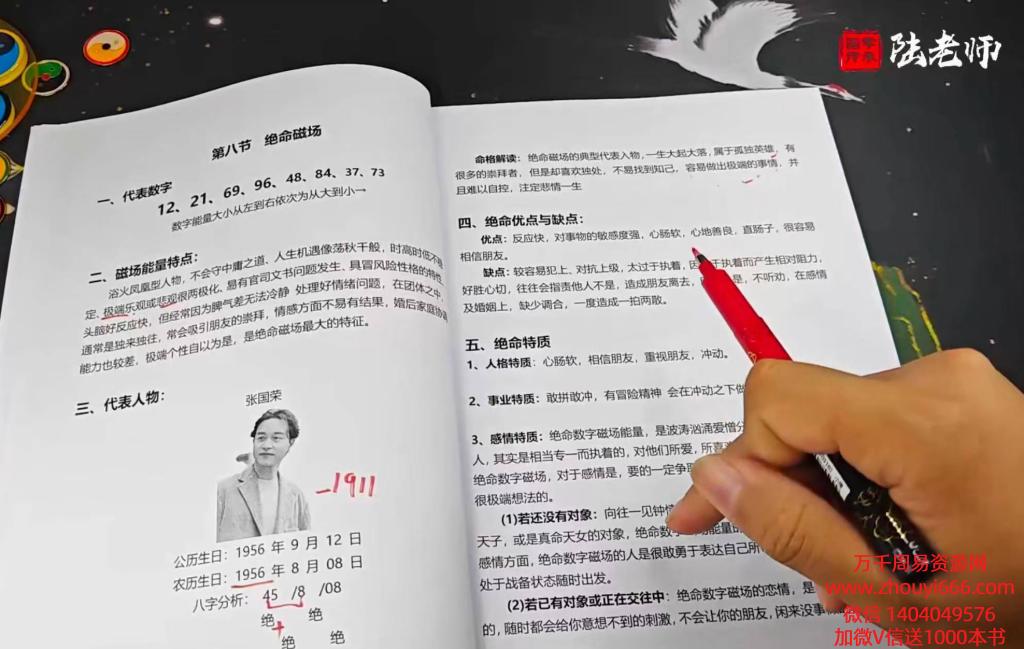 陆老师
第八节 绝命磁场
一、代表数字
12、21、69、96、48、84、37、73
数字能量大小从左到右依次为从大到小→
二、磁场能量特点：
浴火凤凰型人物，不会守中庸之道、人生机遇像荡秋千般，时高时低不稳
定、极端乐观或悲观很两极化、易有官司文书问题发生、具冒风险性格的特性、
头脑好反应快，但经常因为脾气差无法冷静 处理好情绪问题，在团体之中，
通常是独来独往，常会吸引朋友的崇拜，情感方面不易有结果，婚后家庭协调
能力也较差，极端个性自以为是，是绝命磁场最大的特征。
三、代表人物：
张国荣
-1911
公历生日：1956 年 9 月 12 日
农历生日：1956 年 8 月 08 日
八字分析： 45 /8 /08
绝 绝
绝 绝
命格解读：绝命磁场的典型代表人物，一生大起大落，属于孤独英雄，有
很多的崇拜者，但是却喜欢独处，不易找到知己，容易做出极端的事情，并
且难以自控，注定悲情一生
四、绝命优点与缺点：
优点：反应快，对事物的敏感度强，心肠软，心地善良，直肠子，很容易
相信朋友。
缺点：较容易犯上，对抗上级，太过于执着，因 于执着而产生相对阻力，
好胜心切，往往会指责他人不是，造成朋友离去， 是，不听劝，在感情
及婚姻上，缺少调合，一度造成一拍两散。
五、绝命特质
1、人格特质：心肠软，相信朋友，重视朋友，冲动。
2、事业特质：敢拼敢冲，有冒险精神 会在冲动之下做
3、感情特质：绝命数字磁场能量，是波涛汹涌爱憎分
人，其实是相当专一而执着的，对他们所爱，所喜
绝命数字磁场，对于感情是，要的一定争
很极端想法的。
(1)若还没有对象：向往一见钟
天子，或是真命天女的对象，绝命数 能量
感情方面，绝命数字磁场的人是很敢勇于表达自己所
处于战备状态随时出发。
(2)若已有对象或正在交往中：绝命数字磁场的恋情，是
的，随时都会给你意想不到的刺激，不会让你的朋友，闲来没事
万千周易资源网
www.zhouyi666.com
微信 1404049576
加微V信送1000本书